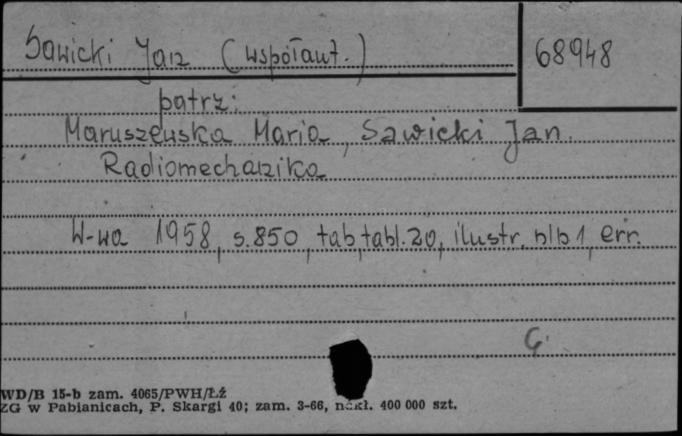 Sawicki Jan (współaut.)
68948
patrz:
Maruszewska Maria, Sawicki Jan.
Radiomechanika
W-wa 1958, s.850, tab, tabl.20, ilustr. nlb 1, err.
WD/B 15-b zam. 4065/PWH/Łź
ZG w Pabianicach, P. Skargi 40; zam. 3-66, nakł. 400 000 szt.